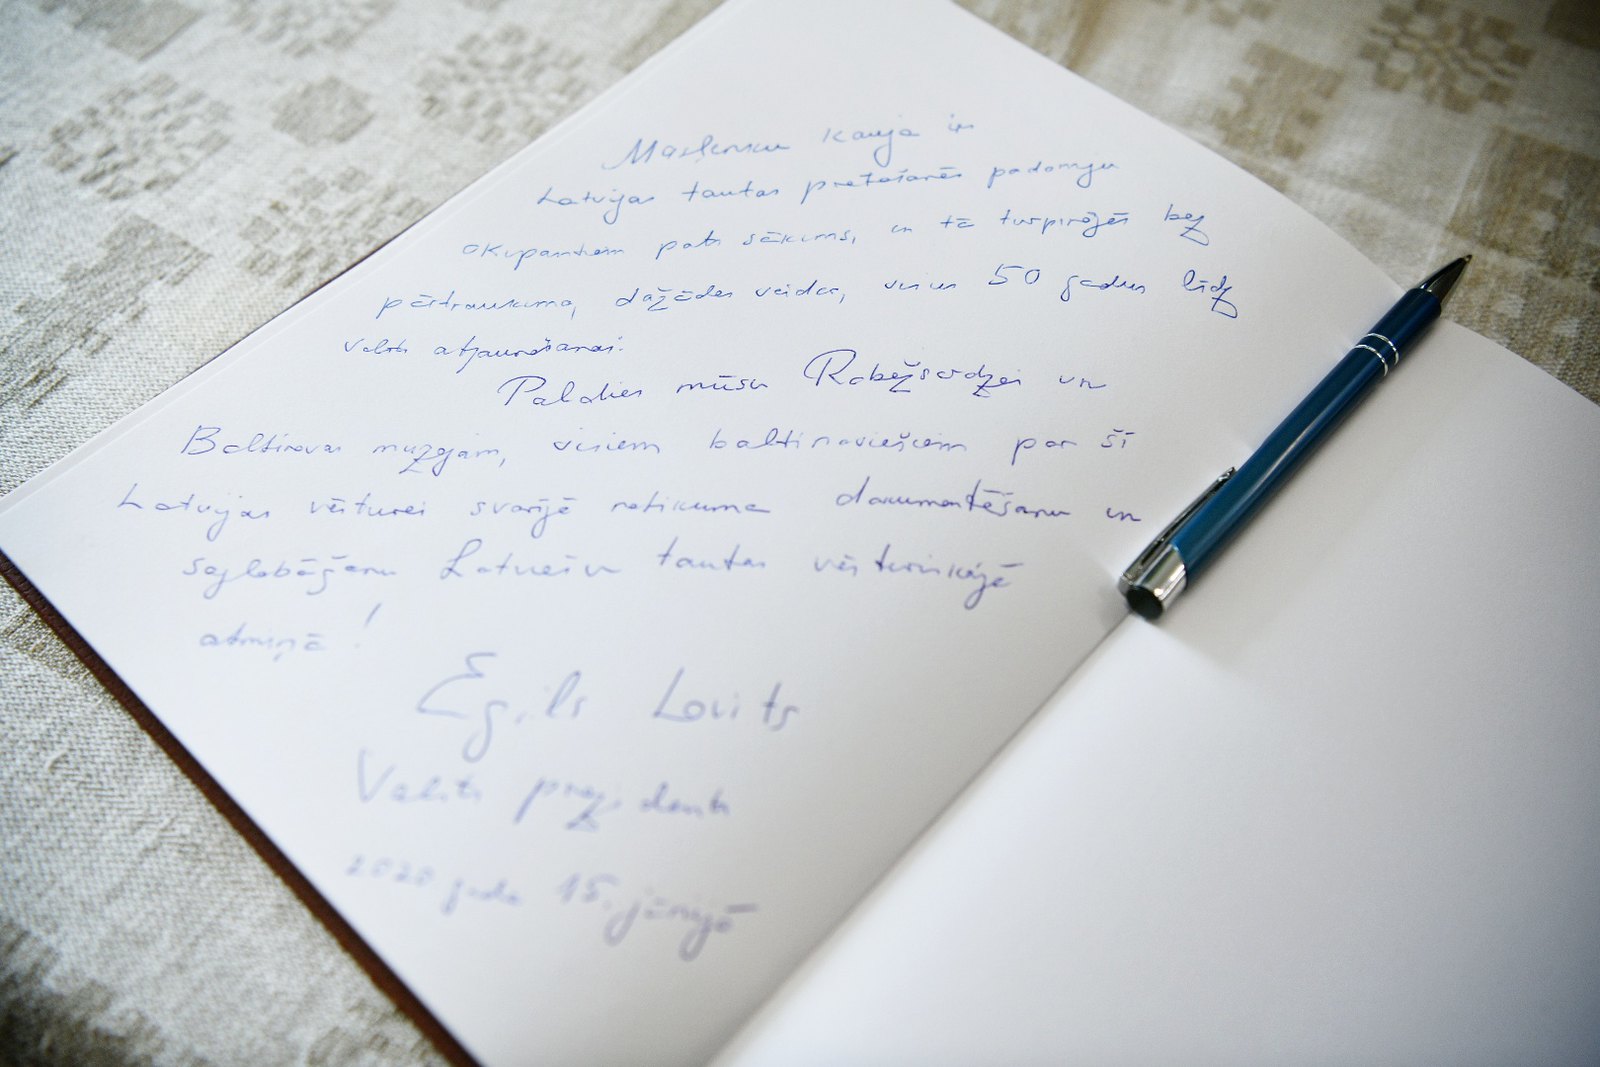 Masļenku kauja ir
Latvijas tautas pretošanās padomju
okupantiem pats sākums, un tā turpinājās bez
pārtraukuma, dažādos veidos, visus 50 gadus līdz
valsts atjaunošanai.
Paldies mūsu Robežsardzei un
Baltinavas muzejam, visiem baltinaviešiem par šī
Latvijas vēsturei svarīgā notikuma dokumentēšanu un
saglabāšanu Latviešu tautas vēsturiskajā
atmiņā!
Egils Levits
Valsts prezidents
2020. gada 15. jūnijā